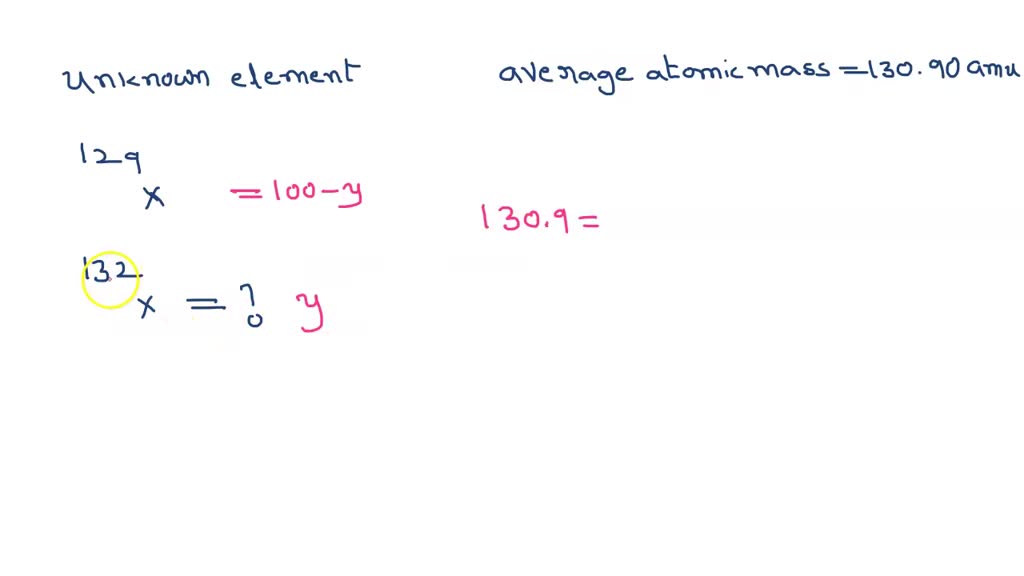 Unknown element
average atomic mass = 130.90 amu
129
X = 100 - y
130.9 =
132
X = ? y